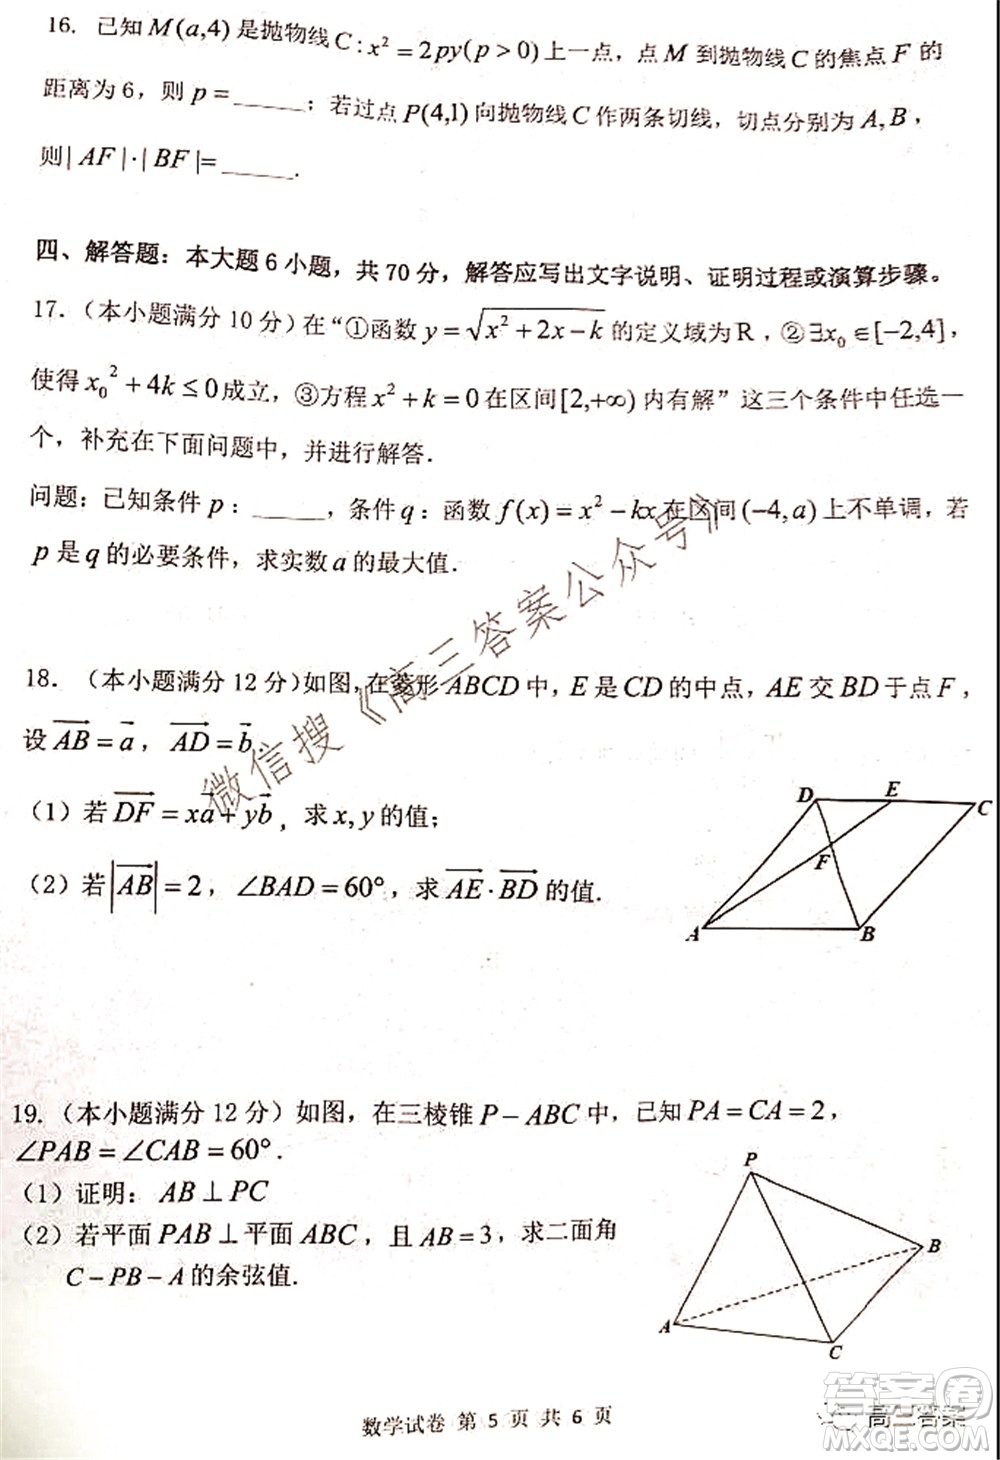 16. 已知 M(a,4) 是抛物线 C : x² = 2py(p > 0) 上一点，点 M 到抛物线 C 的焦点 F 的
距离为 6，则 p = _____；若过点 P(4,1) 向抛物线 C 作两条切线，切点分别为 A, B，
则 | AF | · | BF |= _____.
四、解答题：本大题 6 小题，共 70 分，解答应写出文字说明、证明过程或演算步骤。
17.（本小题满分 10 分）在“①函数 y = √(x² + 2x − k) 的定义域为 R，②∃x₀ ∈ [−2,4]，
使得 x₀² + 4k ≤ 0 成立，③方程 x² + k = 0 在区间 [2,+∞) 内有解”这三个条件中任选一
个，补充在下面问题中，并进行解答.
问题：已知条件 p：_____，条件 q：函数 f(x) = x² − kx 在区间 (−4, a) 上不单调，若
p 是 q 的必要条件，求实数 a 的最大值.
18. （本小题满分 12 分）如图，在菱形 ABCD 中，E 是 CD 的中点，AE 交 BD 于点 F，
设 \overrightarrow{AB} = \vec{a}，\overrightarrow{AD} = \vec{b}
（1）若 \overrightarrow{DF} = x\vec{a} + y\vec{b}，求 x, y 的值；
（2）若 |\overrightarrow{AB}| = 2，∠BAD = 60°，求 \overrightarrow{AE} · \overrightarrow{BD} 的值.
D E C
F
A B
19.（本小题满分 12 分）如图，在三棱锥 P − ABC 中，已知 PA = CA = 2，
∠PAB = ∠CAB = 60°.
（1）证明：AB ⊥ PC
（2）若平面 PAB ⊥ 平面 ABC，且 AB = 3，求二面角
C − PB − A 的余弦值.
P
B
A
C
数学试卷 第 5 页 共 6 页
微信搜《高三答案公众号》
答案圈
高三答案